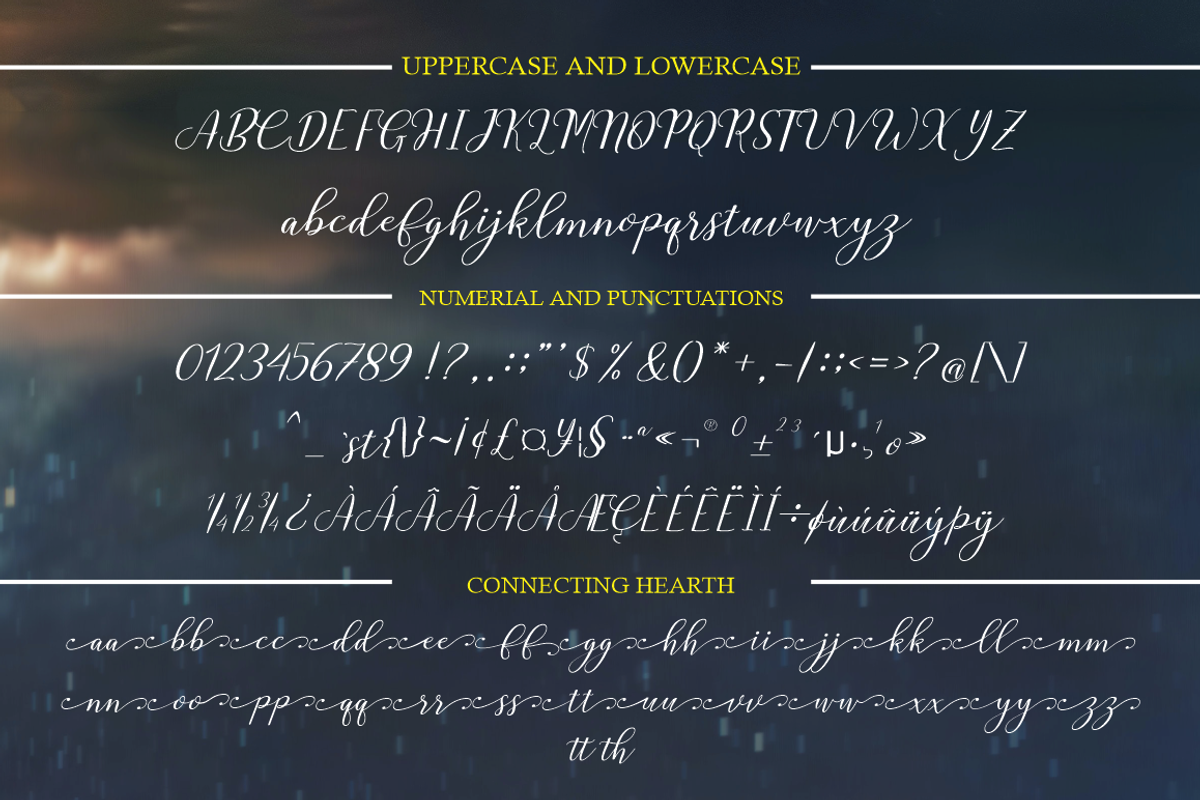 UPPERCASE AND LOWERCASE
ABCDEFGHIJKLMNOPQRSTUVWXYZ
abcdefghijklmnopqrstuvwxyz
NUMERIAL AND PUNCTUATIONS
0123456789 !? ,.:; ”’ $ % & () * + , - / : ; < = > ? @ [ \ ]
^ _ ` st { \ } ~ ¡ ¢ £ ¤ ¥ ¦ § ¨ ª « ¬ ® 0 ± 2 3 ´ µ · ¸ 1 o »
¼ ½ ¾ ¿ À Á Â Ã Ä Å Æ Ç È É Ê Ë Ì Í ÷ ø ù ú û ü ý þ ÿ
CONNECTING HEARTH
aa bb cc dd ee ff gg hh ii jj kk ll mm
nn oo pp qq rr ss tt uu vv ww xx yy zz
tt th